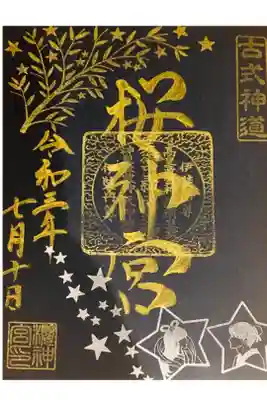 古式神道
桜神宮
令和三年
七月十日
櫻神
宮印